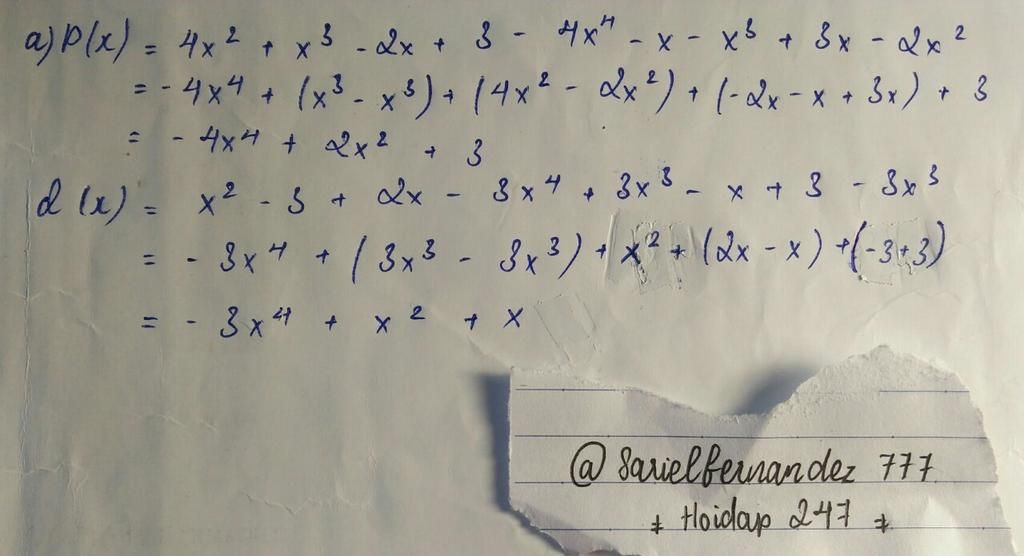 a) P(x) = 4x² + x³ - 2x + 3 - 4x⁴ - x - x³ + 3x - 2x²
= - 4x⁴ + (x³ - x³) + (4x² - 2x²) + (-2x - x + 3x) + 3
= - 4x⁴ + 2x² + 3
Q(x) = x² - 3 + 2x - 3x⁴ + 3x³ - x + 3 - 3x³
= - 3x⁴ + (3x³ - 3x³) + x² + (2x - x) + (-3+3)
= - 3x⁴ + x² + x
@ sarielfernandez 777
* Hoidap 247 *